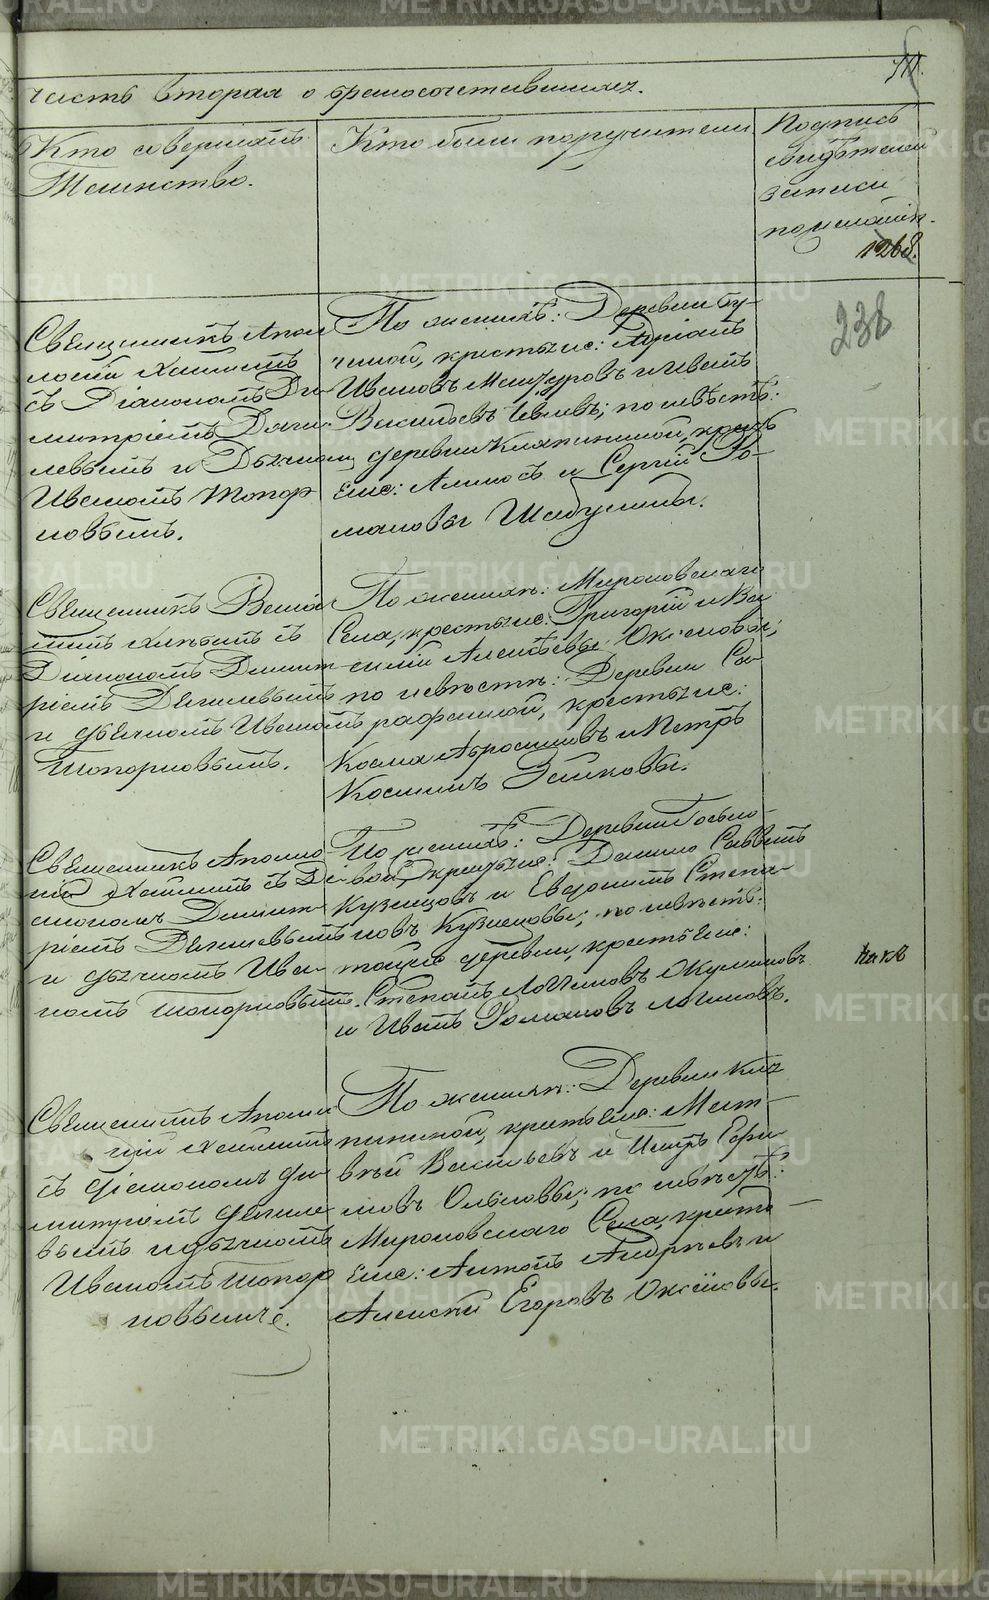 часть вторая о бракосочетавшихся.
Кто совершалъ
Таинство.
Кто были поручители
Подпись
свидѣтелей
записи
по желанію.
1268.
238
Священникъ Аполло
съ Діакономъ Ди-
митріемъ
и Дьячкомъ
Иваномъ Топор
новымъ.
По женихѣ: Деревни Бу-
чиной, крестьяне: Адріанъ
Ивановъ и Иванъ
Васильевъ Ивлевъ; по невѣстѣ:
деревни крестья
не: и Сергій Ро-
мановы Шабунины.
Священникъ Веніа
минъ съ
Діакономъ Димит
ріемъ Дягилевымъ
и дьячкомъ Иваномъ
Топорновымъ.
По женихѣ: Мироновскаго
Села, крестьяне: Григорій и Ва
силій Алексѣевы Оксеновы;
по невѣстѣ: Деревни Са
рафанной, крестьяне:
Косма Абросимовъ и Петръ
Косминъ Заиковы.
Священникъ Аполло
съ Ді
акономъ Димит
ріемъ Дягилевымъ
и дьячкомъ Ива-
номъ Топорновымъ.
По женихѣ: Деревни
крестьяне: Данило Саввинъ
Кузнецовъ и Евдокимъ Степа-
новъ Кузнецовы; по невѣстѣ:
тойже деревни, крестьяне:
Степанъ Логиновъ Окуловъ
и Иванъ Романовъ Логиновъ.
Священникъ Аполло
съ діакономъ Ди
митріемъ Дягиле
вымъ и дьячкомъ
Иваномъ Топор
новымъ.
По женихѣ: Деревни Кля
пининой, крестьяне: Мат-
вѣй Васильевъ и Ефи
мовъ; по невѣстѣ:
Мироновскаго Села, крестья
не: Антонъ Андреевъ и
Алексѣй Егоровъ Оксёновы.
METRIKI.GASO-URAL.RU